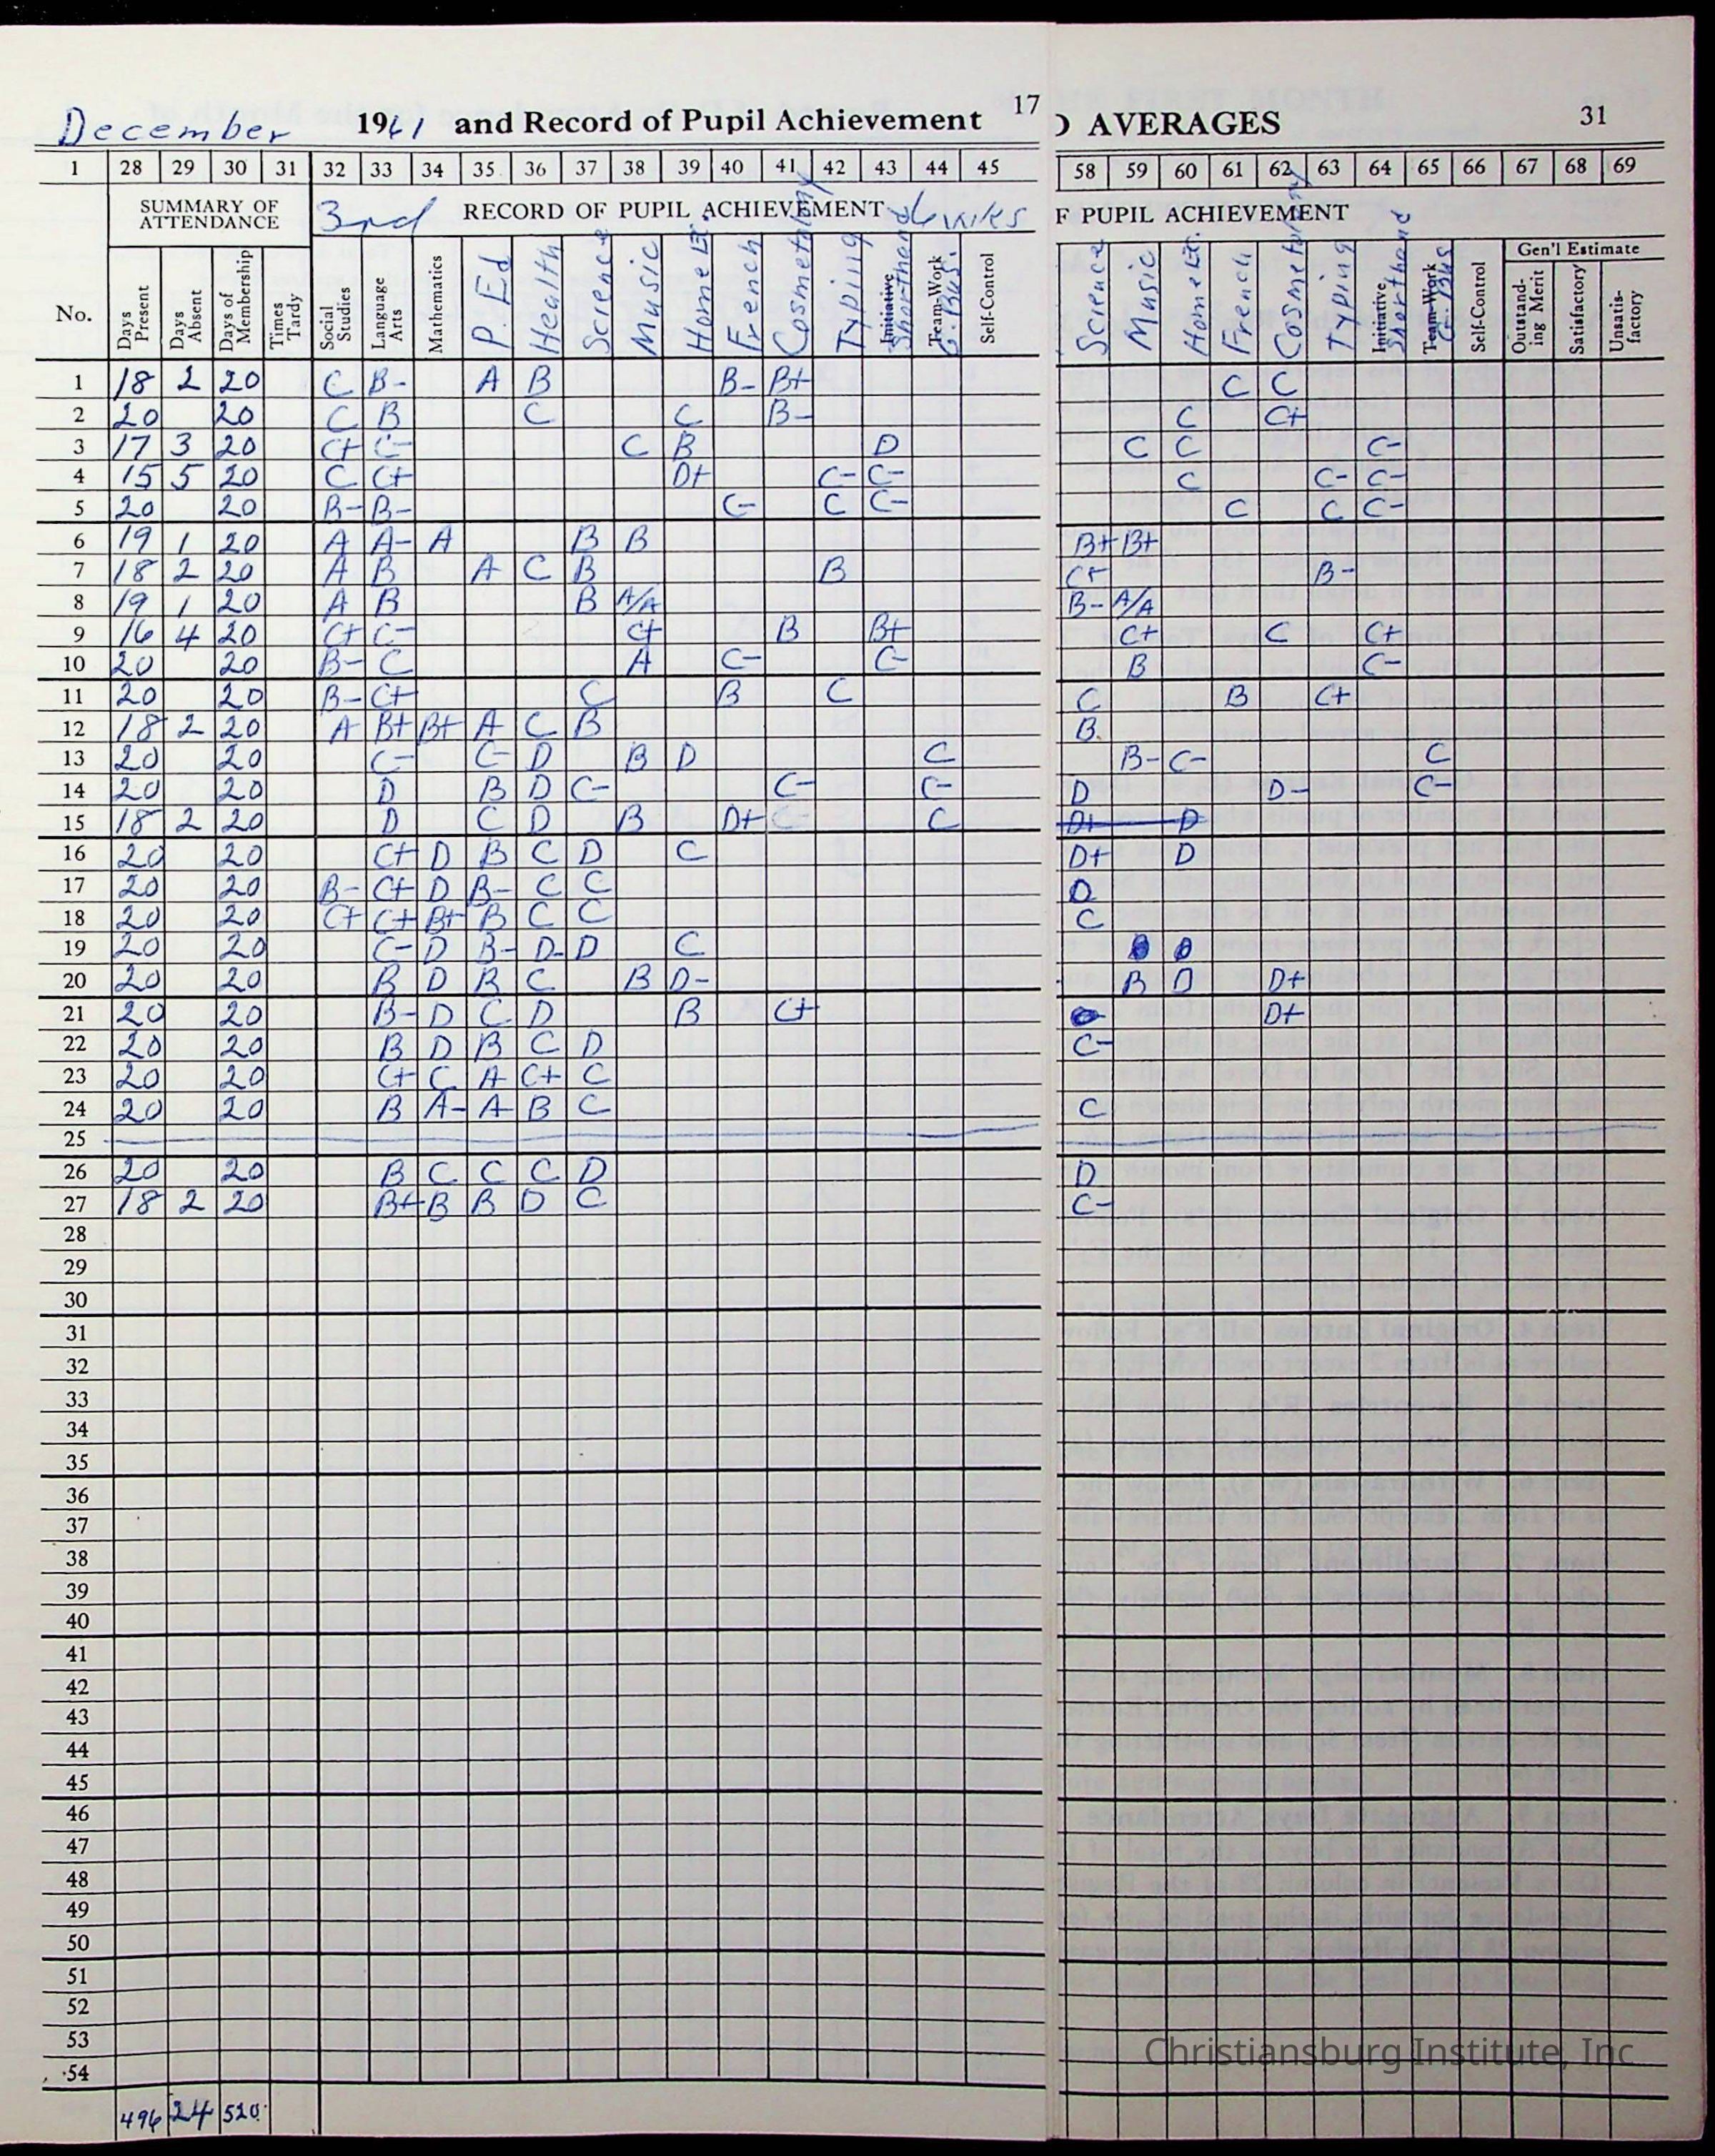 December 1961 and Record of Pupil Achievement 17
D AVERAGES 31
1 28 29 30 31 32 33 34 35 36 37 38 39 40 41 42 43 44 45 58 59 60 61 62 63 64 65 66 67 68 69
SUMMARY OF ATTENDANCE 3rd RECORD OF PUPIL ACHIEVEMENT 6 wks F PUPIL ACHIEVEMENT
Gen'l Estimate
No. Days Present Days Absent Days of Membership Times Tardy Social Studies Language Arts Mathematics P. Ed Health Science Music Home Ec. French Cosmetology Typing Initiative Shorthand Team-Work G. Bus. Self-Control Science Music Home Ec. French Cosmetology Typing Initiative Shorthand Team-Work G. Bus Self-Control Outstanding Merit Satisfactory Unsatisfactory
1 18 2 20 C B- A B B- B+ C C
2 20 20 C B C C B- C C+
3 17 3 20 C+ C- C B D C C C-
4 15 5 20 C C+ D+ C- C- C C- C-
5 20 20 B- B- C- C C- C C C-
6 19 1 20 A A- A B B B+ B+
7 18 2 20 A B A C B B C+ B-
8 19 1 20 A B B A/A B- A/A
9 16 4 20 C+ C- C+ B B+ C+ C C+
10 20 20 B- C A C- C- B C-
11 20 20 B- C+ C B C C B C+
12 18 2 20 A B+ B+ A C B B
13 20 20 C- C- D B D C B- C- C
14 20 20 D B D C- C- C- D D- C-
15 18 2 20 D C D B D+ C- C D+ D
16 20 20 C+ D B C D C D+ D
17 20 20 B- C+ D B- C C D
18 20 20 C+ C+ B+ B C C C
19 20 20 C- D B- D- D C
20 20 20 B D B C B D- B D D+
21 20 20 B- D C D B C+ D+
22 20 20 B D B C D C-
23 20 20 C+ C A C+ C
24 20 20 B A- A B C C
25
26 20 20 B C C C D D
27 18 2 20 B+ B B D C C-
28
29
30
31
32
33
34
35
36
37
38
39
40
41
42
43
44
45
46
47
48
49
50
51
52
53
54
496 24 520
Christiansburg Institute, Inc